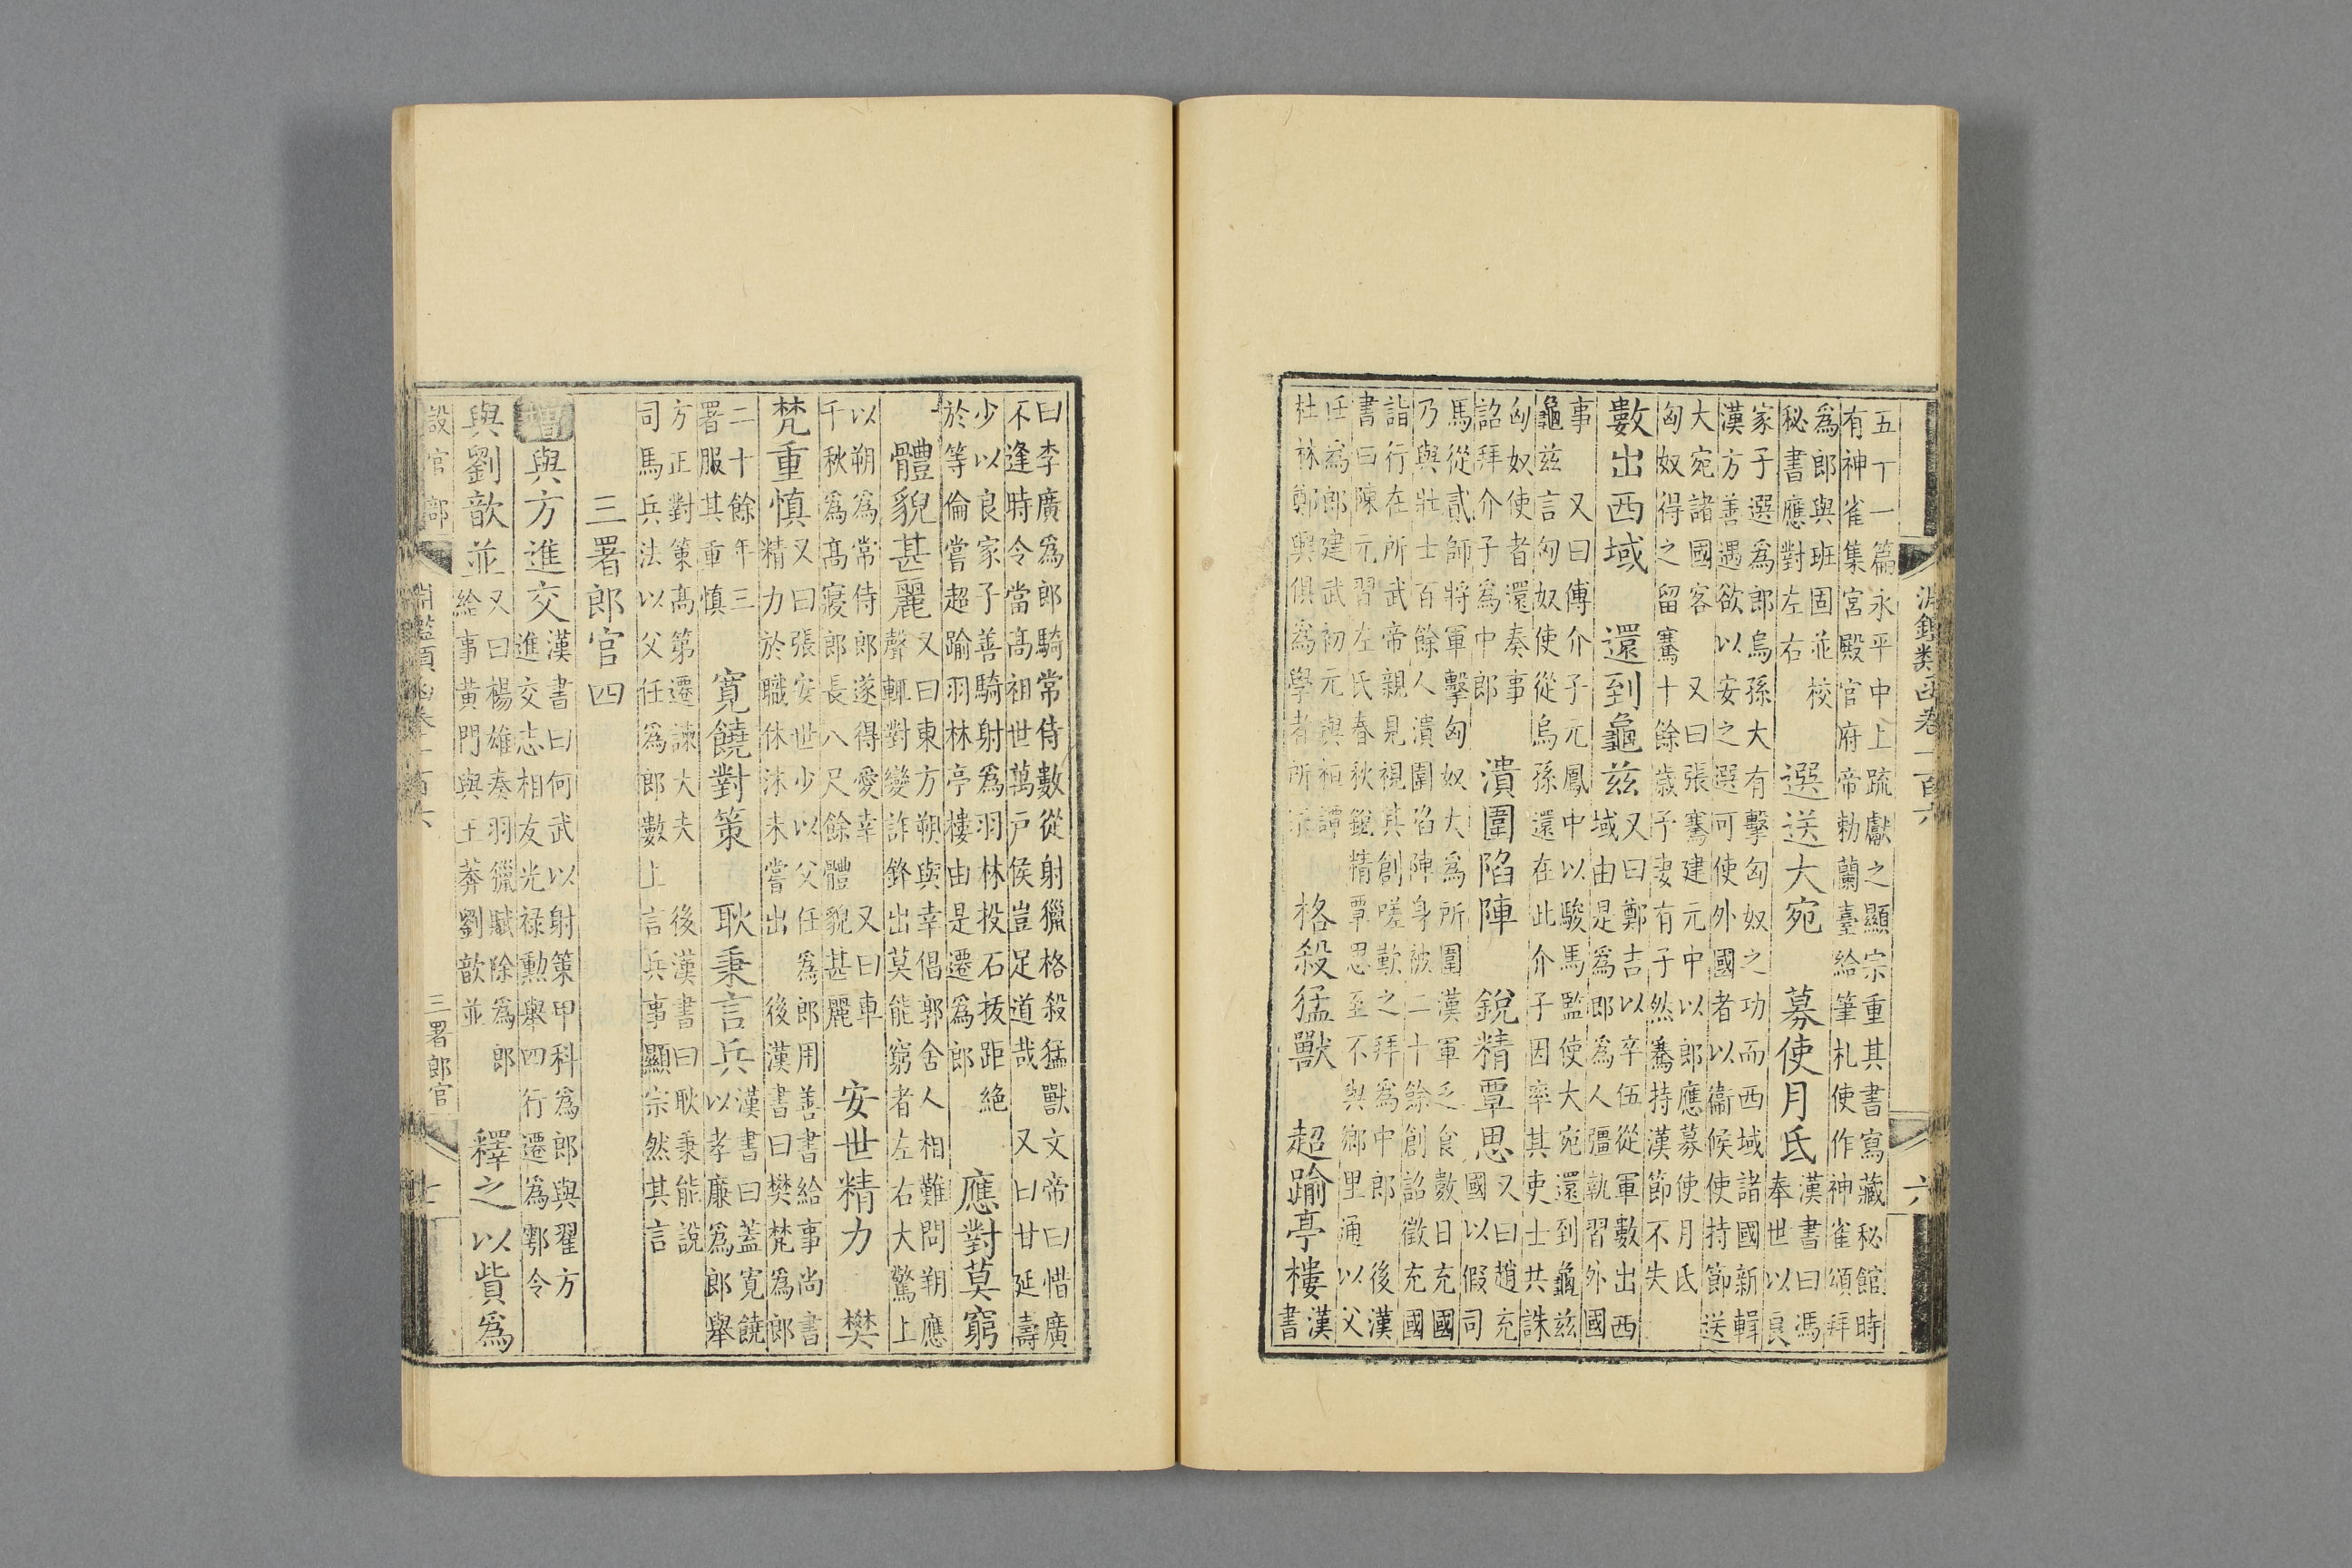 淵鑑類函卷一百六
六
五丁一篇永平中上疏獻之顯宗重其書寫藏秘館時
有神雀集宮殿官府帝勅蘭臺給筆札使作神雀頌拜
爲郎與班固並校
秘書應對左右
選送大宛 募使月氏
漢書曰馮
奉世以良
家子選爲郎烏孫大有擊匈奴之功而西域諸國新輯
漢方善遇欲以安之選可使外國者以衞候使持節送
大宛諸國客 又曰張騫建元中以郎應募使月氏
匈奴得之留騫十餘歲予妻有子然騫持漢節不失
數出西域 還到龜兹
又曰鄭吉以卒伍從軍數出西
域由是爲郎爲人彊執習外國
事 又曰傅介子元鳳中以駿馬監使大宛還到龜兹
龜兹言匈奴使從烏孫還在此介子因率其吏士共誅
匈奴使者還奏事
詔拜介子爲中郎
潰圍陷陣 銳精覃思
又曰趙充
國以假司
馬從貳師將軍擊匈奴大爲所圍漢軍乏食數日充國
乃與壯士百餘人潰圍陷陣身被二十餘創詔徵充國
詣行在所武帝親見視其創嗟歎之拜爲中郎 後漢
書曰陳元習左氏春秋銳精覃思至不與鄉里通以父
任爲郎建武初元與桓譚
杜林鄭興俱爲學者所
格殺猛獸 超踰亭樓
漢
書
曰李廣爲郎騎常侍數從射獵格殺猛獸文帝曰惜廣
不逢時令當高祖世萬戸侯豈足道哉 又曰甘延壽
少以良家子善騎射爲羽林投石拔距絶
於等倫嘗超踰羽林亭樓由是遷爲郎
應對莫窮
體貌甚麗
又曰東方朔與幸倡郭舍人相難問朔應
聲輒對變詐鋒出莫能窮者左右大驚上
以朔爲常侍郎遂得愛幸 又曰車
千秋爲高寢郎長八尺餘體貌甚麗
安世精力 樊
梵重慎
又曰張安世少以父任爲郎用善書給事尚書
精力於職休沐未嘗出 後漢書曰樊梵爲郎
二十餘年三
署服其重慎
寬饒對策 耿秉言兵
漢書曰蓋寬饒
以孝廉爲郎舉
方正對策高第遷諫大夫 後漢書曰耿秉能說
司馬兵法以父任爲郎數上言兵事顯宗然其言
三署郎官四
增與方進交
漢書曰何武以射策甲科爲郎與翟方
進交志相友光禄勳舉四行遷爲鄠令
與劉歆並
又曰楊雄奏羽獵賦除爲郎
給事黃門與王莽劉歆並
釋之以貲爲
設官部
淵鑑類函卷一百六
三署郎官
七